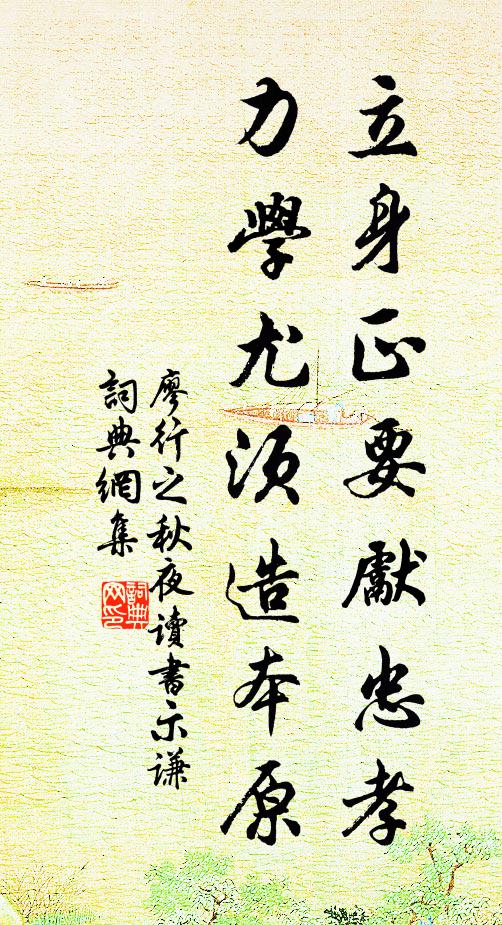 立身正要獻忠孝
力學尤須造本原
廖行之秋夜讀書示謙
詞典網集
詞典
网印